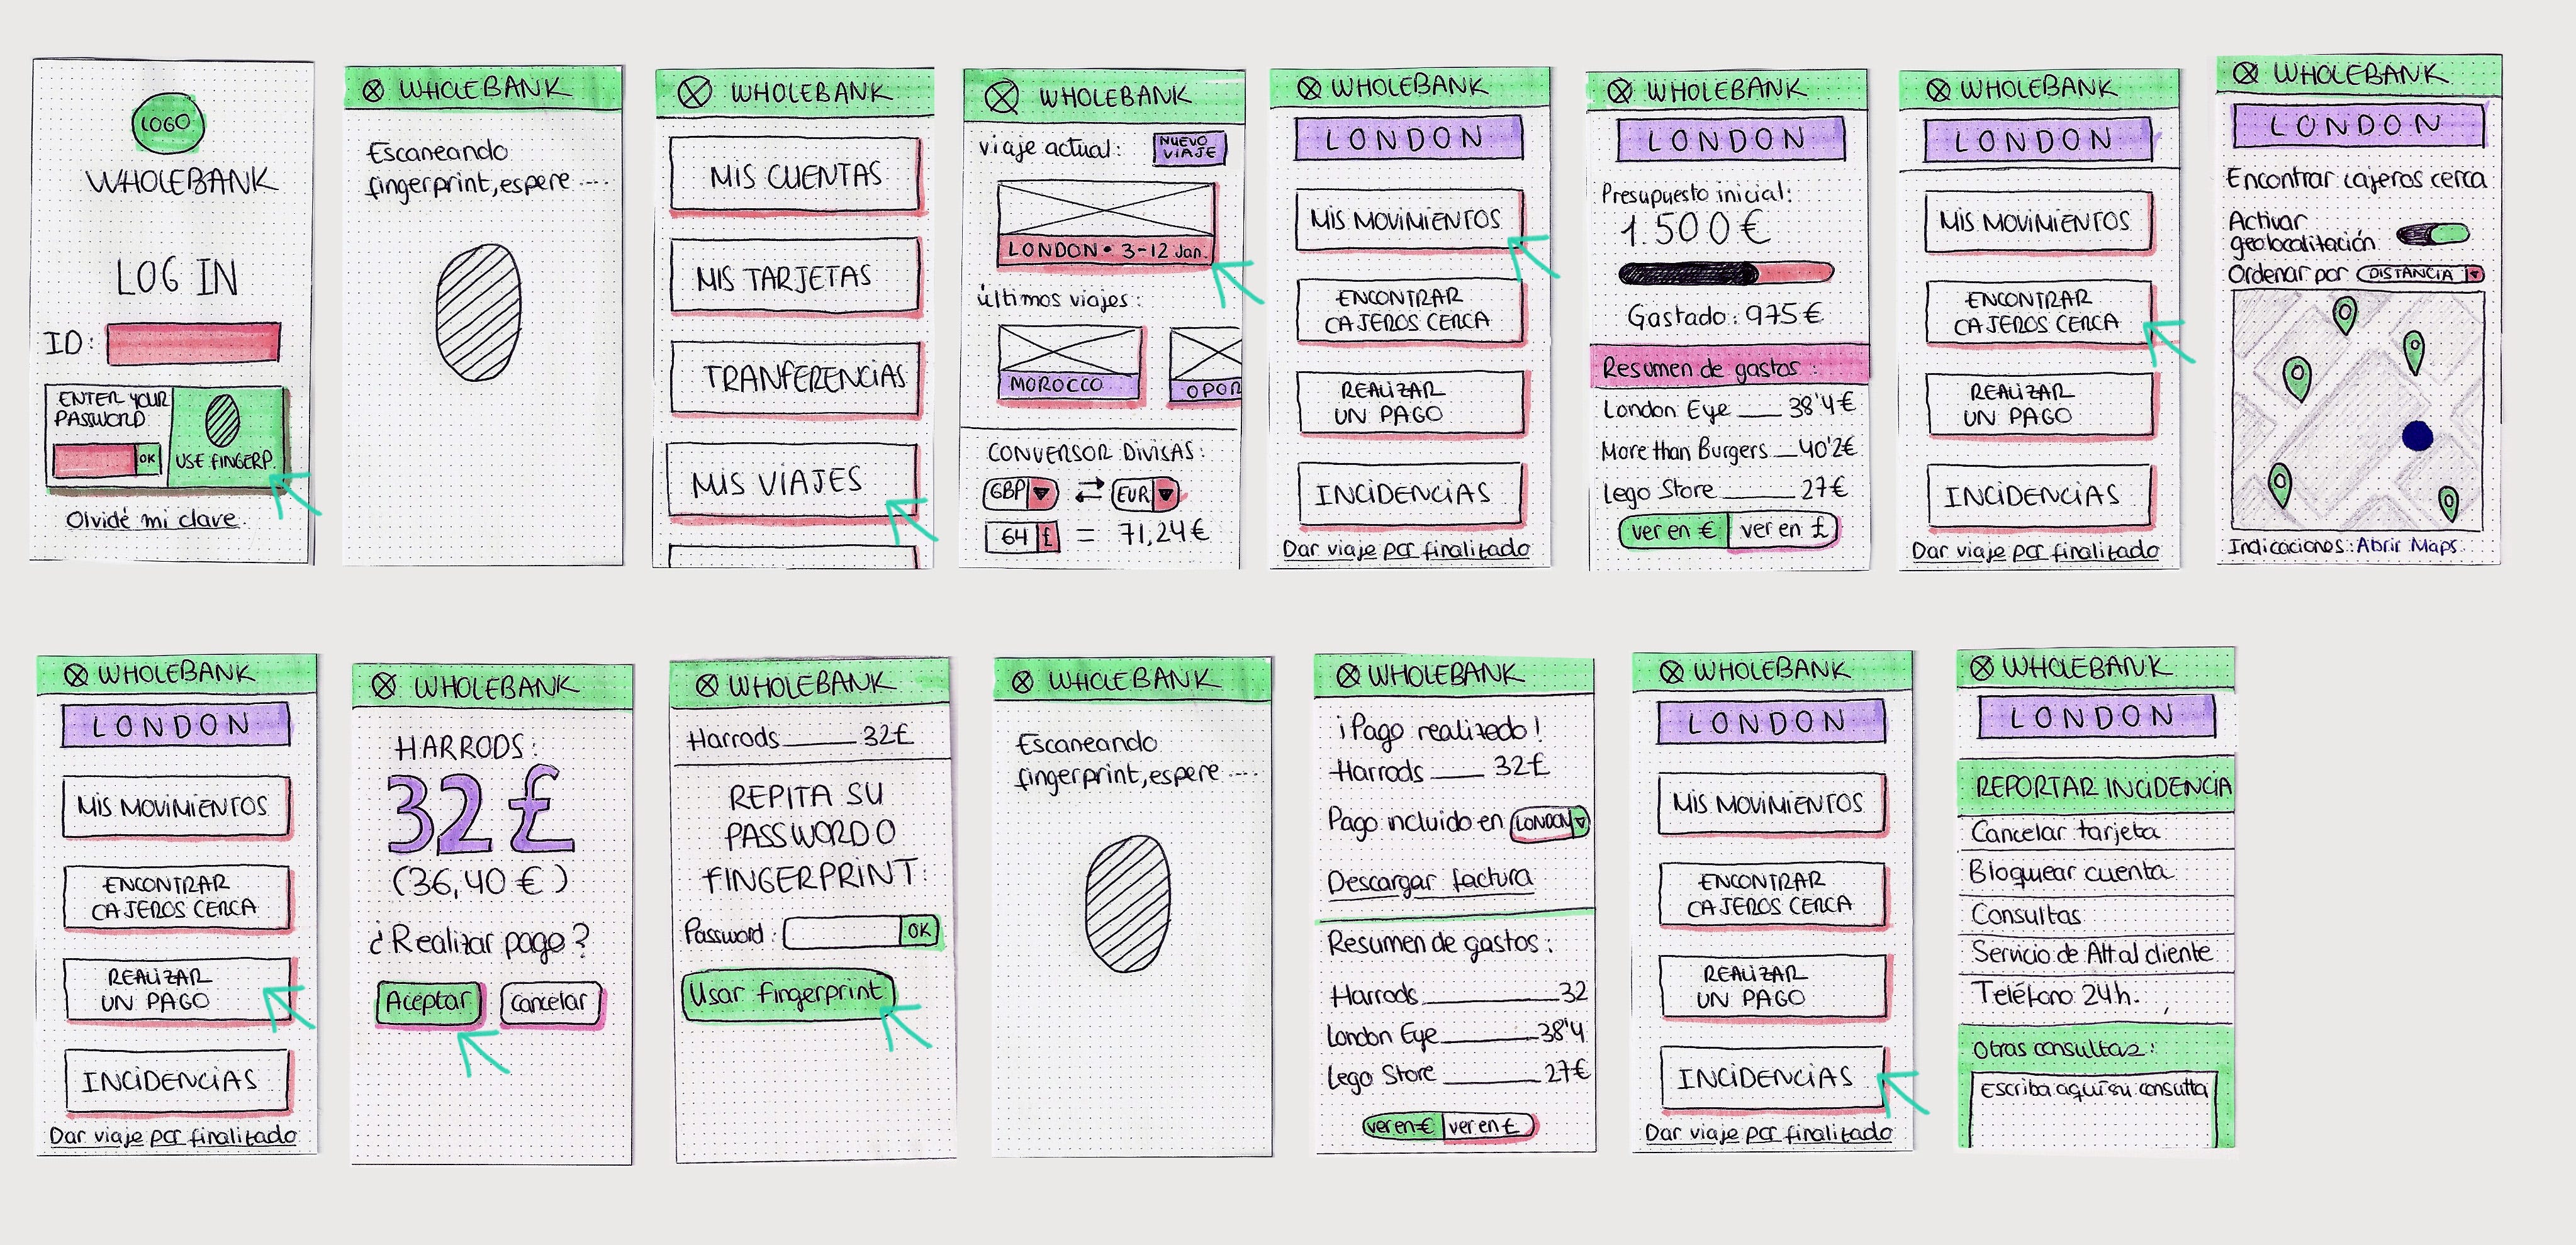 LOGO
WHOLEBANK
LOG IN
ID:
ENTER YOUR
PASSWORD
OK
USE FINGERP.
Olvidé mi clave.
WHOLEBANK
Escaneando
fingerprint, espere ....
WHOLEBANK
MIS CUENTAS
MIS TARJETAS
TRANFERENCIAS
MIS VIAJES
WHOLEBANK
viaje actual:
NUEVO
VIAJE
LONDON • 3-12 Jan.
últimos viajes:
MOROCCO
OPOR
CONVERSOR DIVISAS:
GBP
EUR
64 £ = 71,24€
WHOLEBANK
LONDON
MIS MOVIMIENTOS
ENCONTRAR
CAJEROS CERCA
REALIZAR
UN PAGO
INCIDENCIAS
Dar viaje por finalitado
WHOLEBANK
LONDON
Presupuesto inicial:
1.500€
Gastado: 975€
Resumen de gastos:
London Eye 38'4€
More than Burgers 40'2€
Lego Store 27€
ver en € ver en £
WHOLEBANK
LONDON
MIS MOVIMIENTOS
ENCONTRAR
CAJEROS CERCA
REALIZAR
UN PAGO
INCIDENCIAS
Dar viaje por finalitado
WHOLEBANK
LONDON
Encontrar cajeros cerca
Activar
geolocalitación
Ordenar por DISTANCIA
Indicaciones: Abrir Maps.
WHOLEBANK
LONDON
MIS MOVIMIENTOS
ENCONTRAR
CAJEROS CERCA
REALIZAR
UN PAGO
INCIDENCIAS
Dar viaje por finalitado
WHOLEBANK
HARRODS:
32£
(36,40€)
¿Realizar pago?
Aceptar
Cancelar
WHOLEBANK
Harrods 32£
REPITA SU
PASSWORD O
FINGERPRINT:
Password: OK
Usar fingerprint
WHOLEBANK
Escaneando
fingerprint, espere ....
WHOLEBANK
¡Pago realizado!
Harrods 32£
Pago incluido en LONDON
Descargar factura
Resumen de gastos:
Harrods 32
London Eye 38'4
Lego Store 27€
ver en € ver en £
WHOLEBANK
LONDON
MIS MOVIMIENTOS
ENCONTRAR
CAJEROS CERCA
REALIZAR
UN PAGO
INCIDENCIAS
Dar viaje por finalitado
WHOLEBANK
LONDON
REPORTAR INCIDENCIA
Cancelar tarjeta
Bloquear cuenta
Consultas
Servicio de Att al cliente
Teléfono 24h.
Otras consultas:
Escriba aquí su consulta